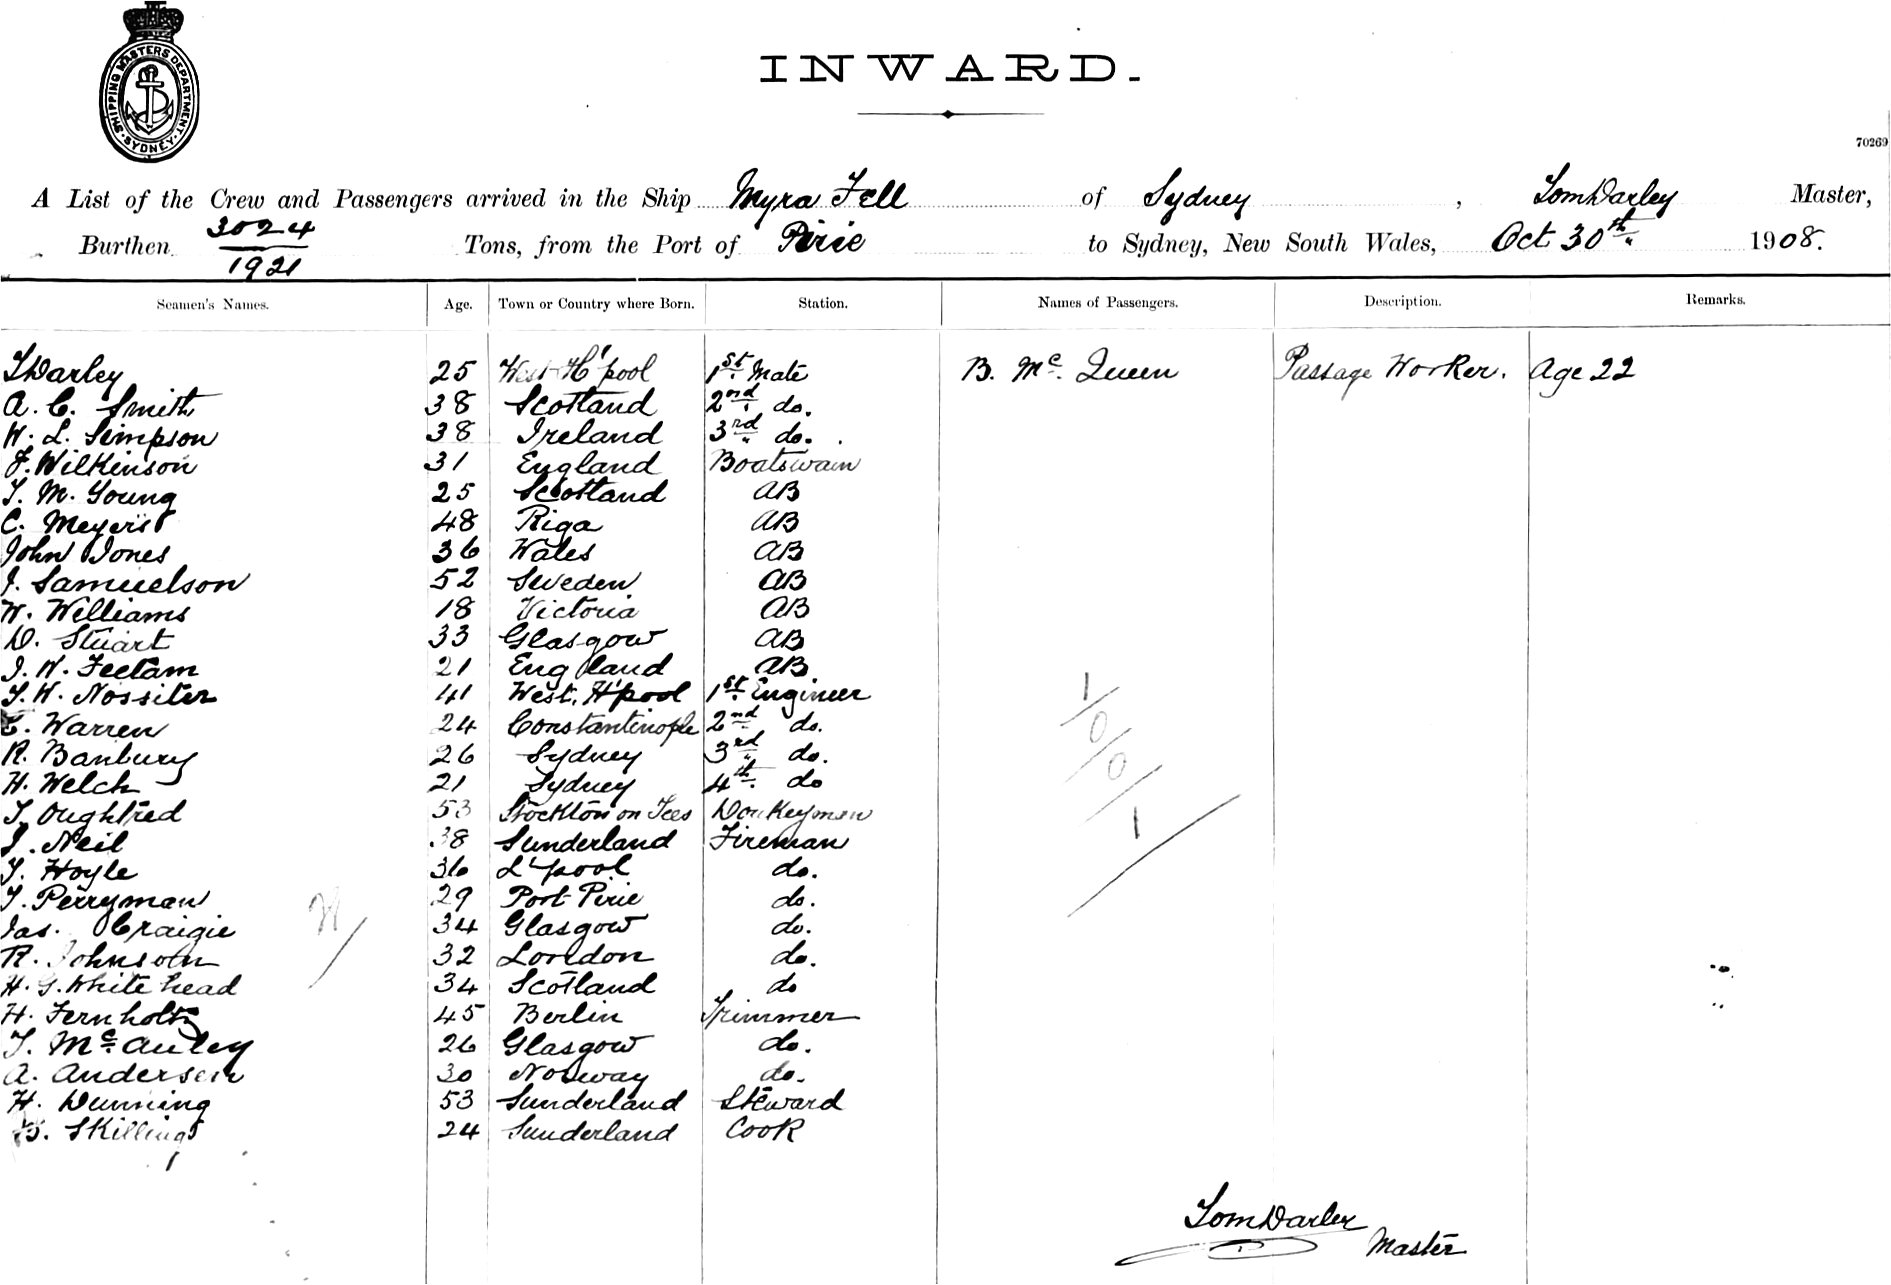 SHIPPING MASTERS DEPARTMENT. SYDNEY
INWARD.
70269
A List of the Crew and Passengers arrived in the Ship Myra Fell of Sydney, Tom Darley Master,
Burthen 3024/1921 Tons, from the Port of Pirie to Sydney, New South Wales, Oct 30th 1908.
Seamen's Names. Age. Town or Country where Born. Station. Names of Passengers. Description. Remarks.
T Darley 25 West H'pool 1st Mate B. Mc Queen Passage Worker. Age 22
A. C. Smith 38 Scotland 2nd do.
W. L. Simpson 38 Ireland 3rd do.
F. Wilkinson 31 England Boatswain
T. M. Young 25 Scotland AB
C. Meyers 48 Riga AB
John Jones 36 Wales AB
J. Samuelson 52 Sweden AB
W. Williams 18 Victoria AB
D. Stuart 33 Glasgow AB
J. W. Feetam 21 England AB
T. W. Nossiter 41 West. H'pool 1st Engineer
E. Warren 24 Constantinople 2nd do.
R. Banbury 26 Sydney 3rd do.
H. Welch 21 Sydney 4th do
T. Oughtred 53 Stockton on Tees Donkeyman
J. Neil 38 Sunderland Fireman
T. Hoyle 36 L'pool do.
T. Perryman 29 Port Pirie do.
Jas. Craigie 34 Glasgow do.
R. Johnson 32 London do.
H. G. Whitehead 34 Scotland do
H. Fernholtz 45 Berlin Trimmer
T. Mc Auley 26 Glasgow do.
A. Andersen 30 Norway do.
H. Dunning 53 Sunderland Steward
Skillings 24 Sunderland Cook
1/0/0/1
Tom Darley
Master